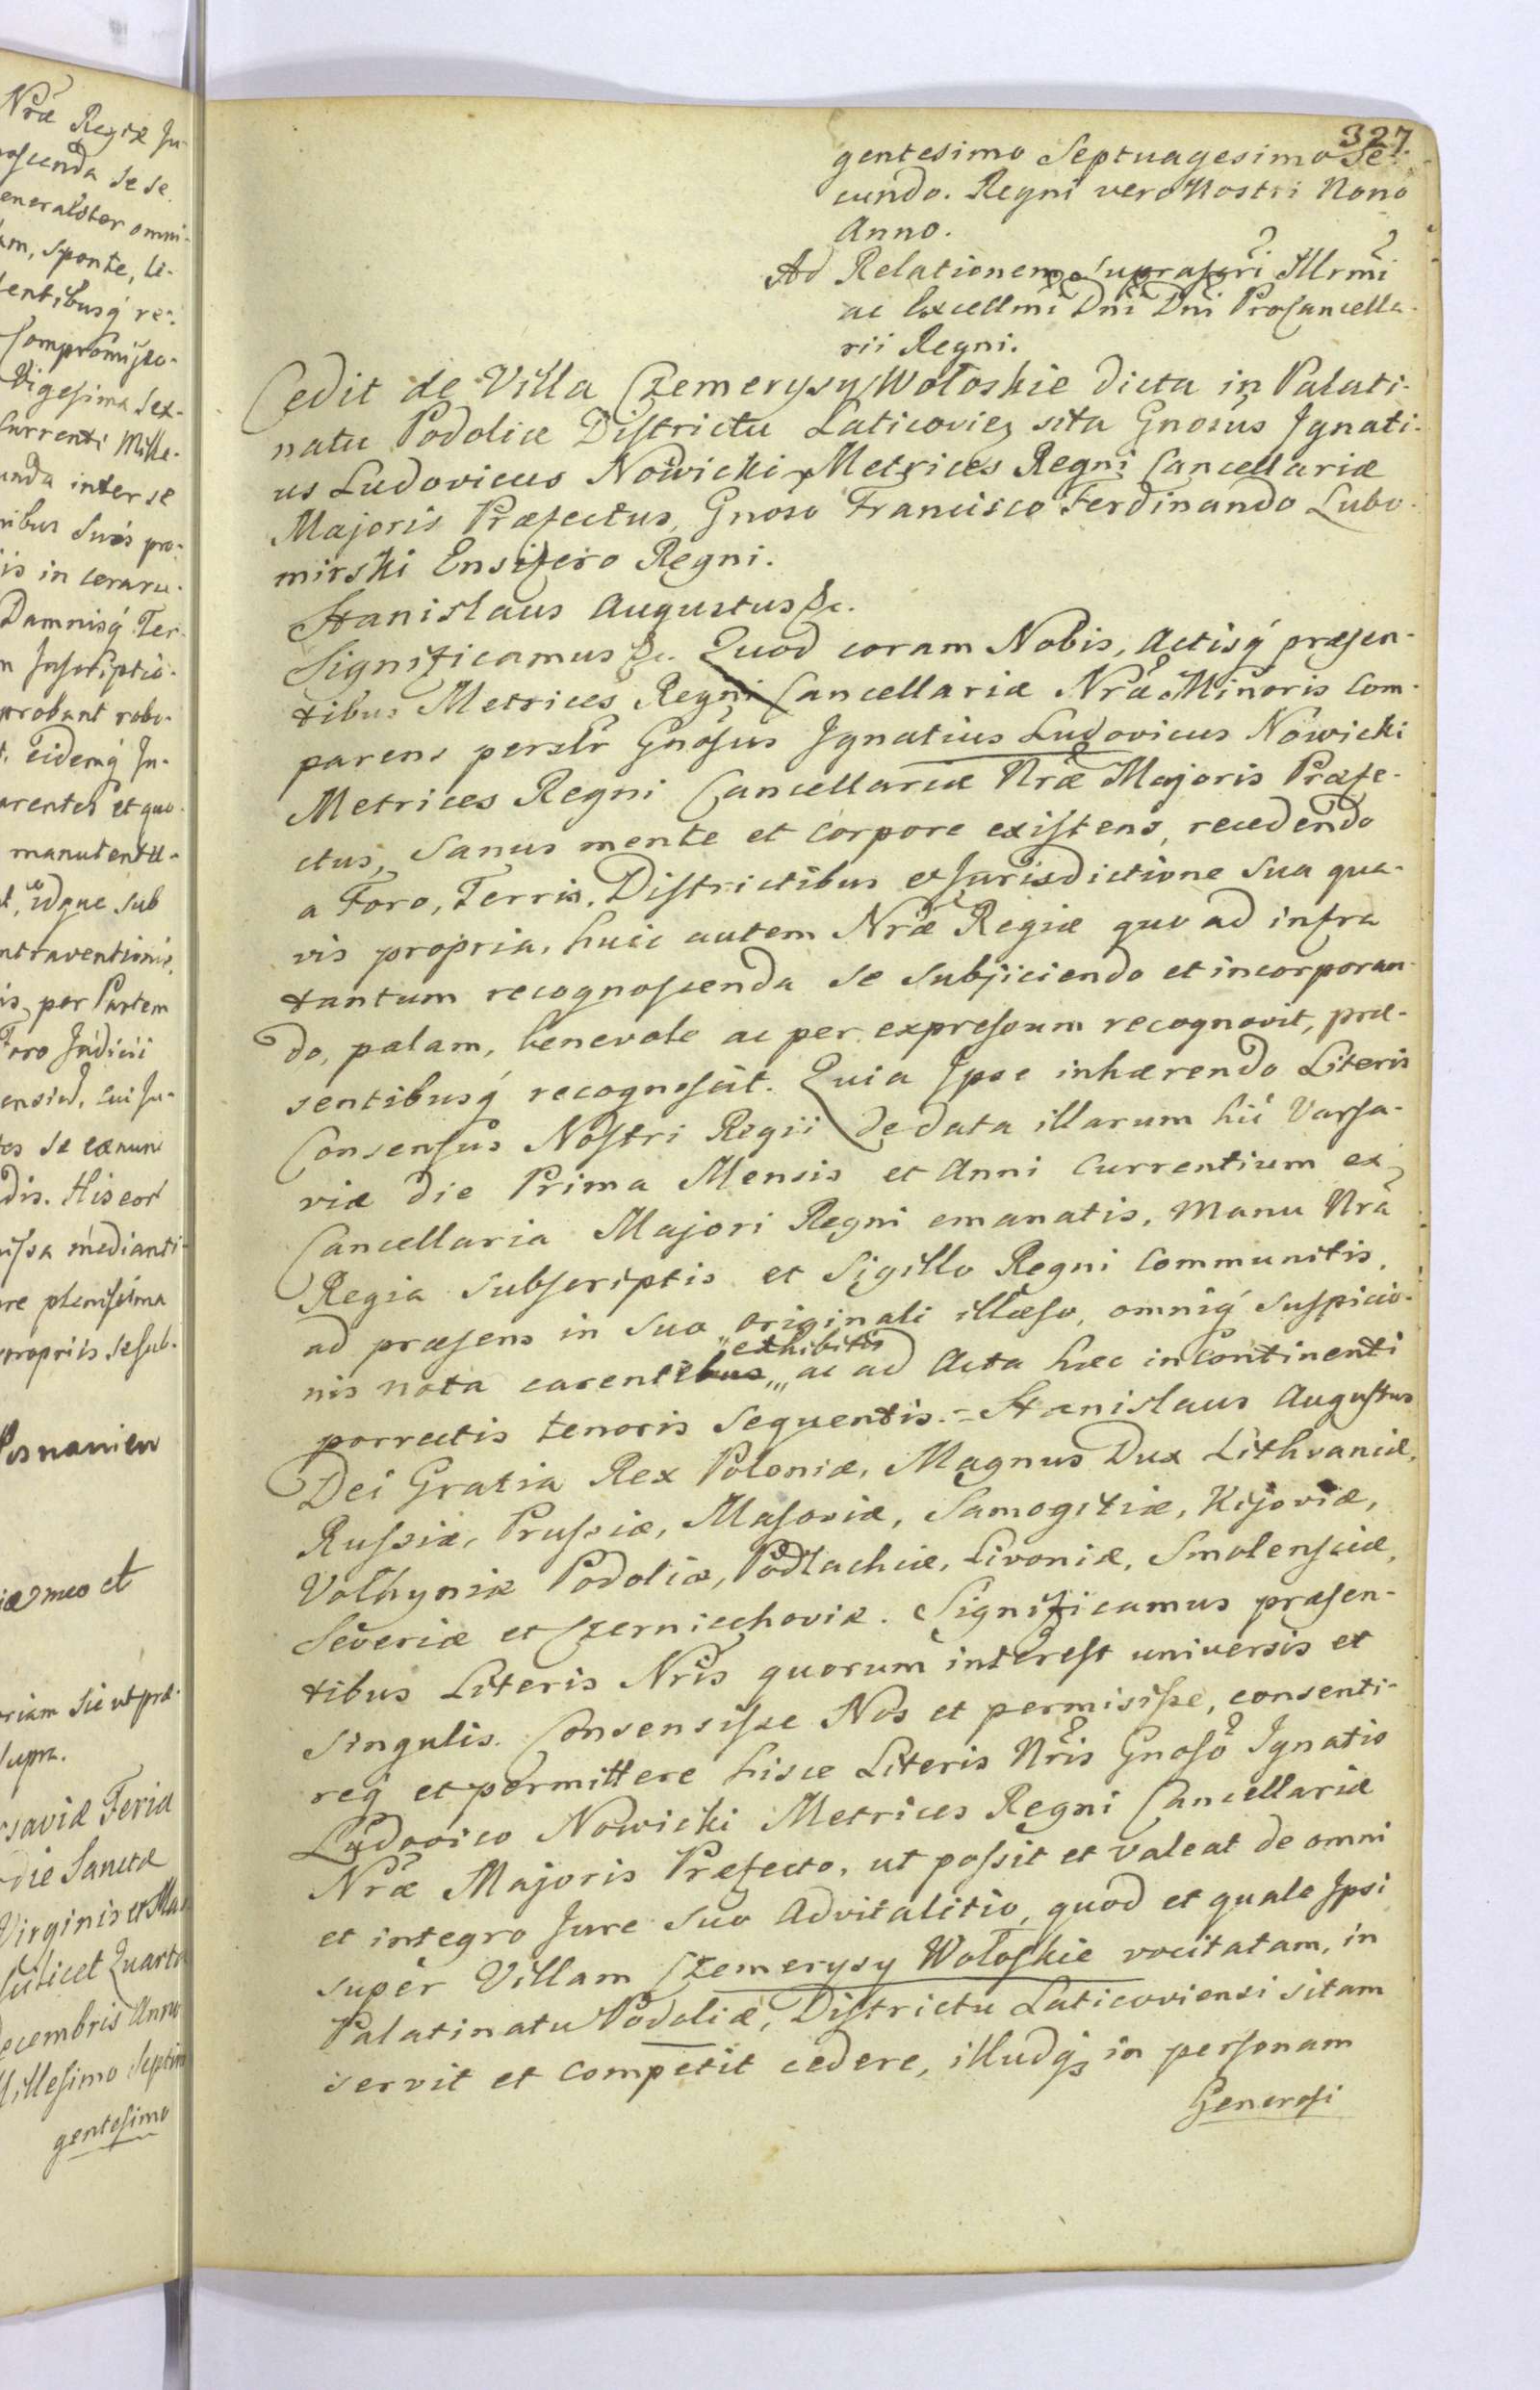 Nrã Regiæ Ju-
noscenda se se
eneraliter omni-
sponte, li-
sentibusq́ re-
Compromisso-
Vigesima Sex-
Currenti Mille-
unda inter se
nibus Suis pro-
is in ceraru-
Damnisq́ Ter-
n Inscriptio-
probant robo-
eidemq́ In-
arentes et quo-
manutentu-
idque sub
ntraventionis
is per Partem
Foro Judicii
cui Ju-
tes se eanunc
dis. His eor̃
issa medianti-
re plenissima
propriis se sub-
Posnanien
meo et
riam sic ut præ-
supra.
rsaviæ Feria
die Sanctæ
Virginis et Mar
scilicet Quarta
ecembris Anno
Millesimo Septin
gentesimo
327.
gentesimo Septuagesimo Se-
cundo. Regni vero Nostri Nono
Anno.
Ad Relationem Suprascri Illrmi
ac Excellmi Dni Dni ProCancella-
rii Regni.
Cedit de Villa Czemerysy Wołoskie dicta in Palati-
natu Podoliæ Districtu Laticovien sita Gnosus Ignati-
us Ludovicus Nowicki Metrices Regni Cancellariæ
Majoris Præfectus, Gnoso Francisco Ferdinando Lubo-
mirski Ensifero Regni.
Stanislaus Augustus &c.
Significamus &c. Quod coram Nobis, Actisq́ præsen-
tibus Metrices Regni Cancellariæ Nræ Minoris Com-
parens perslr Gnosus Ignatius Ludovicus Nowicki
Metrices Regni Cancellariæ Nræ Majoris Præfe-
ctus, Sanus mente et corpore existens, recedendo
a Foro, Terris, Districtibus et Jurisdictione Sua qua-
vis propria, huic autem Nræ Regiæ quo ad infra
tantum recognoscenda se subjiciendo et incorporan-
do, palam, benevole ac per expressum recognovit, præ-
sentibusq́ recognoscit. Quia Ipse inhærendo Literis
Consensus Nostri Regii de data illarum hic Varsa-
viæ die Prima Mensis et Anni Currentium ex
Cancellaria Majori Regni emanatis, Manu Nra
Regia subscriptis et Sigillo Regni Communitis,
ad præsens in suo originali illæso, omniq́ suspicio-
nis nota carentibus „exhibitis„ ac ad Acta hæc in Continenti
porrectis tenoris Sequentis. = Stanislaus Augustus
Dei Gratia Rex Poloniæ, Magnus Dux Lithvaniæ,
Russiæ, Prussiæ, Masoviæ, Samogitiæ, Kijoviæ,
Volhyniæ Podoliæ, Podlachiæ, Livoniæ, Smolensciæ,
Severiæ et Czerniechoviæ. Significamus præsen-
tibus Literis Nris quorum interest universis et
singulis. Consensisse Nos et permisisse, consenti-
req́ et permittere hisce Literis Nris Gnoso Ignatio
Ludovico Nowicki Metrices Regni Cancellariæ
Nræ Majoris Præfecto, ut possit et valeat de omni
et integro Jure suo Advitalitio, quod et quale Ipsi
super Villam Czemerysy Wołoskie vocitatam, in
Palatinatu Podoliæ, Districtu Laticoviensi sitam
servit et competit cedere, illudq́ in personam
Generosi